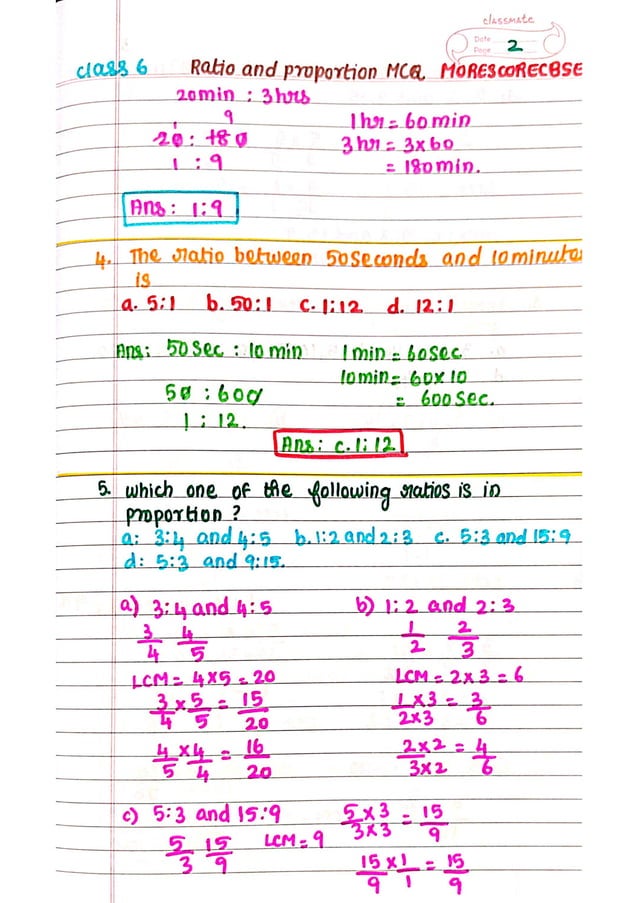 classmate
Date
Page 2
class 6 Ratio and proportion MCQ MORESCORECBSE
20min : 3hrs
1 9
20 : 180
1 : 9
1hr = 60min
3hr = 3x60
= 180min.
Ans: 1:9
4. The ratio between 50seconds and 10minutes
is
a. 5:1 b. 50:1 c. 1:12 d. 12:1
Ans: 50sec : 10min
1min = 60sec
10min = 60x10
= 600sec.
50 : 600
1 : 12.
Ans: c. 1:12
5. which one of the following ratios is in
proportion?
a: 3:4 and 4:5 b. 1:2 and 2:3 c. 5:3 and 15:9
d: 5:3 and 9:15.
a) 3:4 and 4:5
3/4 4/5
LCM = 4x5 = 20
3/4 x 5/5 = 15/20
4/5 x 4/4 = 16/20
b) 1:2 and 2:3
1/2 2/3
LCM = 2x3 = 6
1x3/2x3 = 3/6
2x2/3x2 = 4/6
c) 5:3 and 15:9
5/3 15/9 LCM = 9
5x3/3x3 = 15/9
15/9 x 1/1 = 15/9